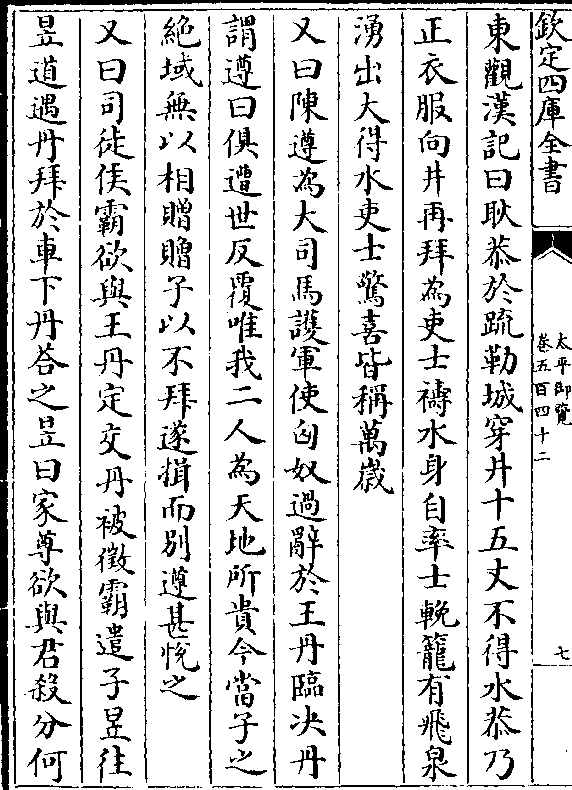 欽定四庫全書
太平御覽
卷五百四十二
七
東觀漢記曰耿恭於疏勒城穿井十五丈不得水恭乃
正衣服向井再拜為吏士禱水身自率士輓籠有飛泉
湧出大得水吏士驚喜皆稱萬歲
又曰陳遵為大司馬護軍使匈奴過辭於王丹臨决丹
謂遵曰俱遭世反覆唯我二人為天地所貴今當子之
絶域無以相贈贈子以不拜遂揖而别遵甚悅之
又曰司徒侯霸欲與王丹定交丹被徵霸遣子昱往
昱道遇丹拜於車下丹荅之昱曰家尊欲與君殺分何